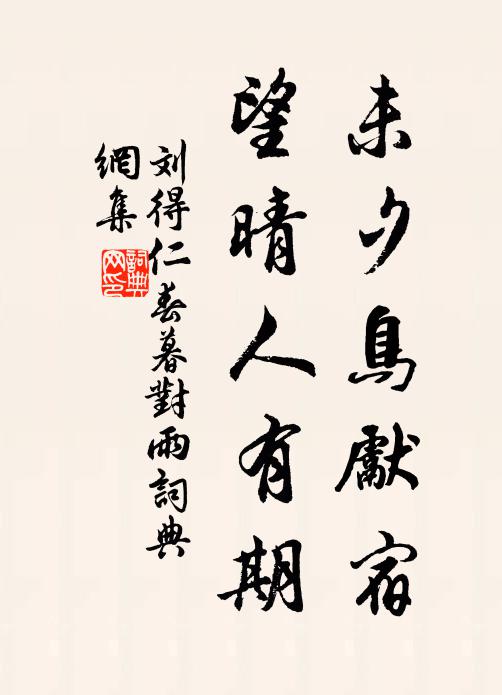 未夕鳥獻宿
望晴人有期
刘得仁春暮對雨詞典
網集
詞典
网印